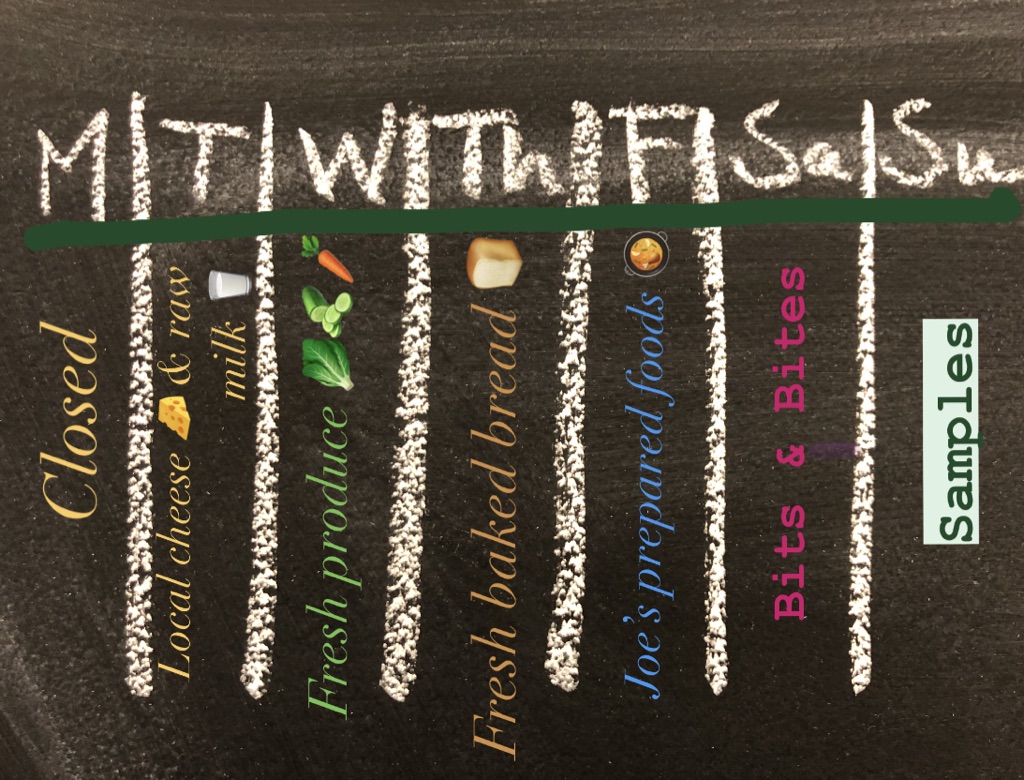 M T W Th F Sa Su
Closed
Local cheese 🧀 & raw
milk 🥛
Fresh produce 🥬🥒🥕
Fresh baked bread 🍞
Joe's prepared foods 🥘
Bits & Bites
Samples